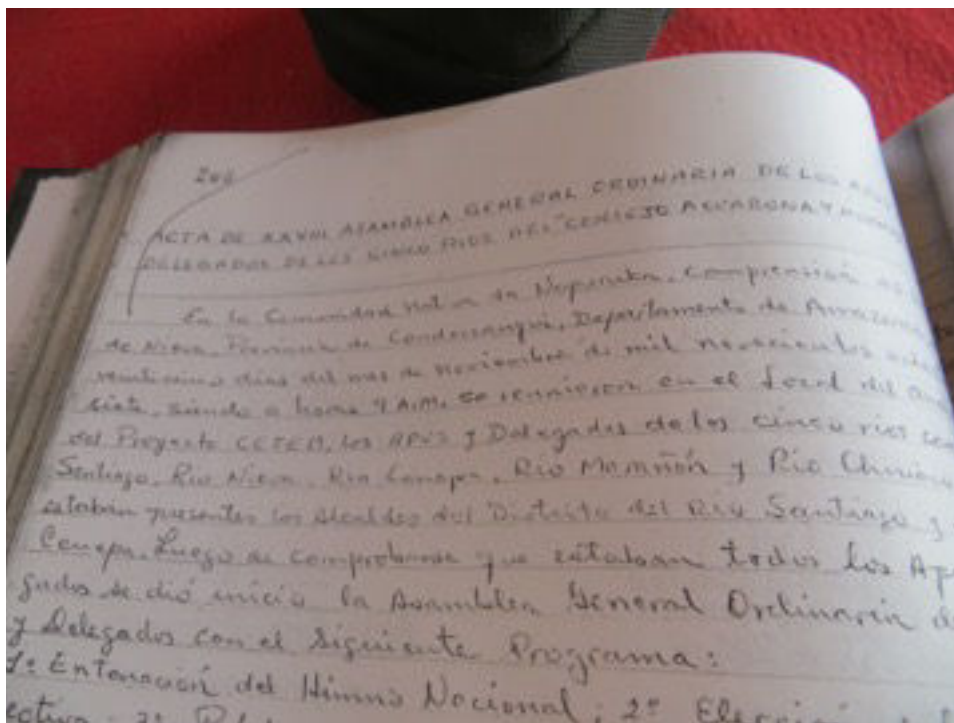 ACTA DE XXVIII ASAMBLEA GENERAL ORDINARIA DE LOS
DELEGADOS DE LOS CINCO RIOS DEL CONSEJO AGUARUNA Y
En la Comunidad Nativa de Napuruka, Comprensión
de Nieva, Provincia de Condorcanqui, Departamento de Amazonas
veintiuno días del mes de noviembre de mil novecientos
siete, siendo a horas 9 A.M. se reunieron en el local del
del Proyecto los Apus y Delegados de los cinco rios
Santiago, Rio Nieva, Rio Cenepa, Río Marañón y Río
estaban presentes los Alcaldes del Distrito del Río Santiago y
Cenepa. Luego de comprobarse que estaban todos los
gados se dió inicio la Asamblea General Ordinaria
y Delegados con el siguiente Programa:
1º Entonación del Himno Nacional; 2º